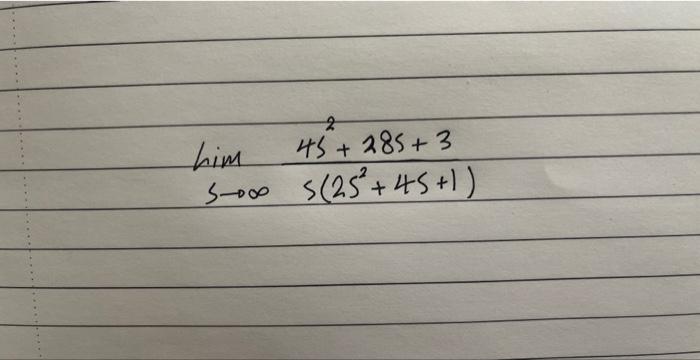 lim 4s² + 28s + 3
s→∞ s(2s² + 4s + 1)